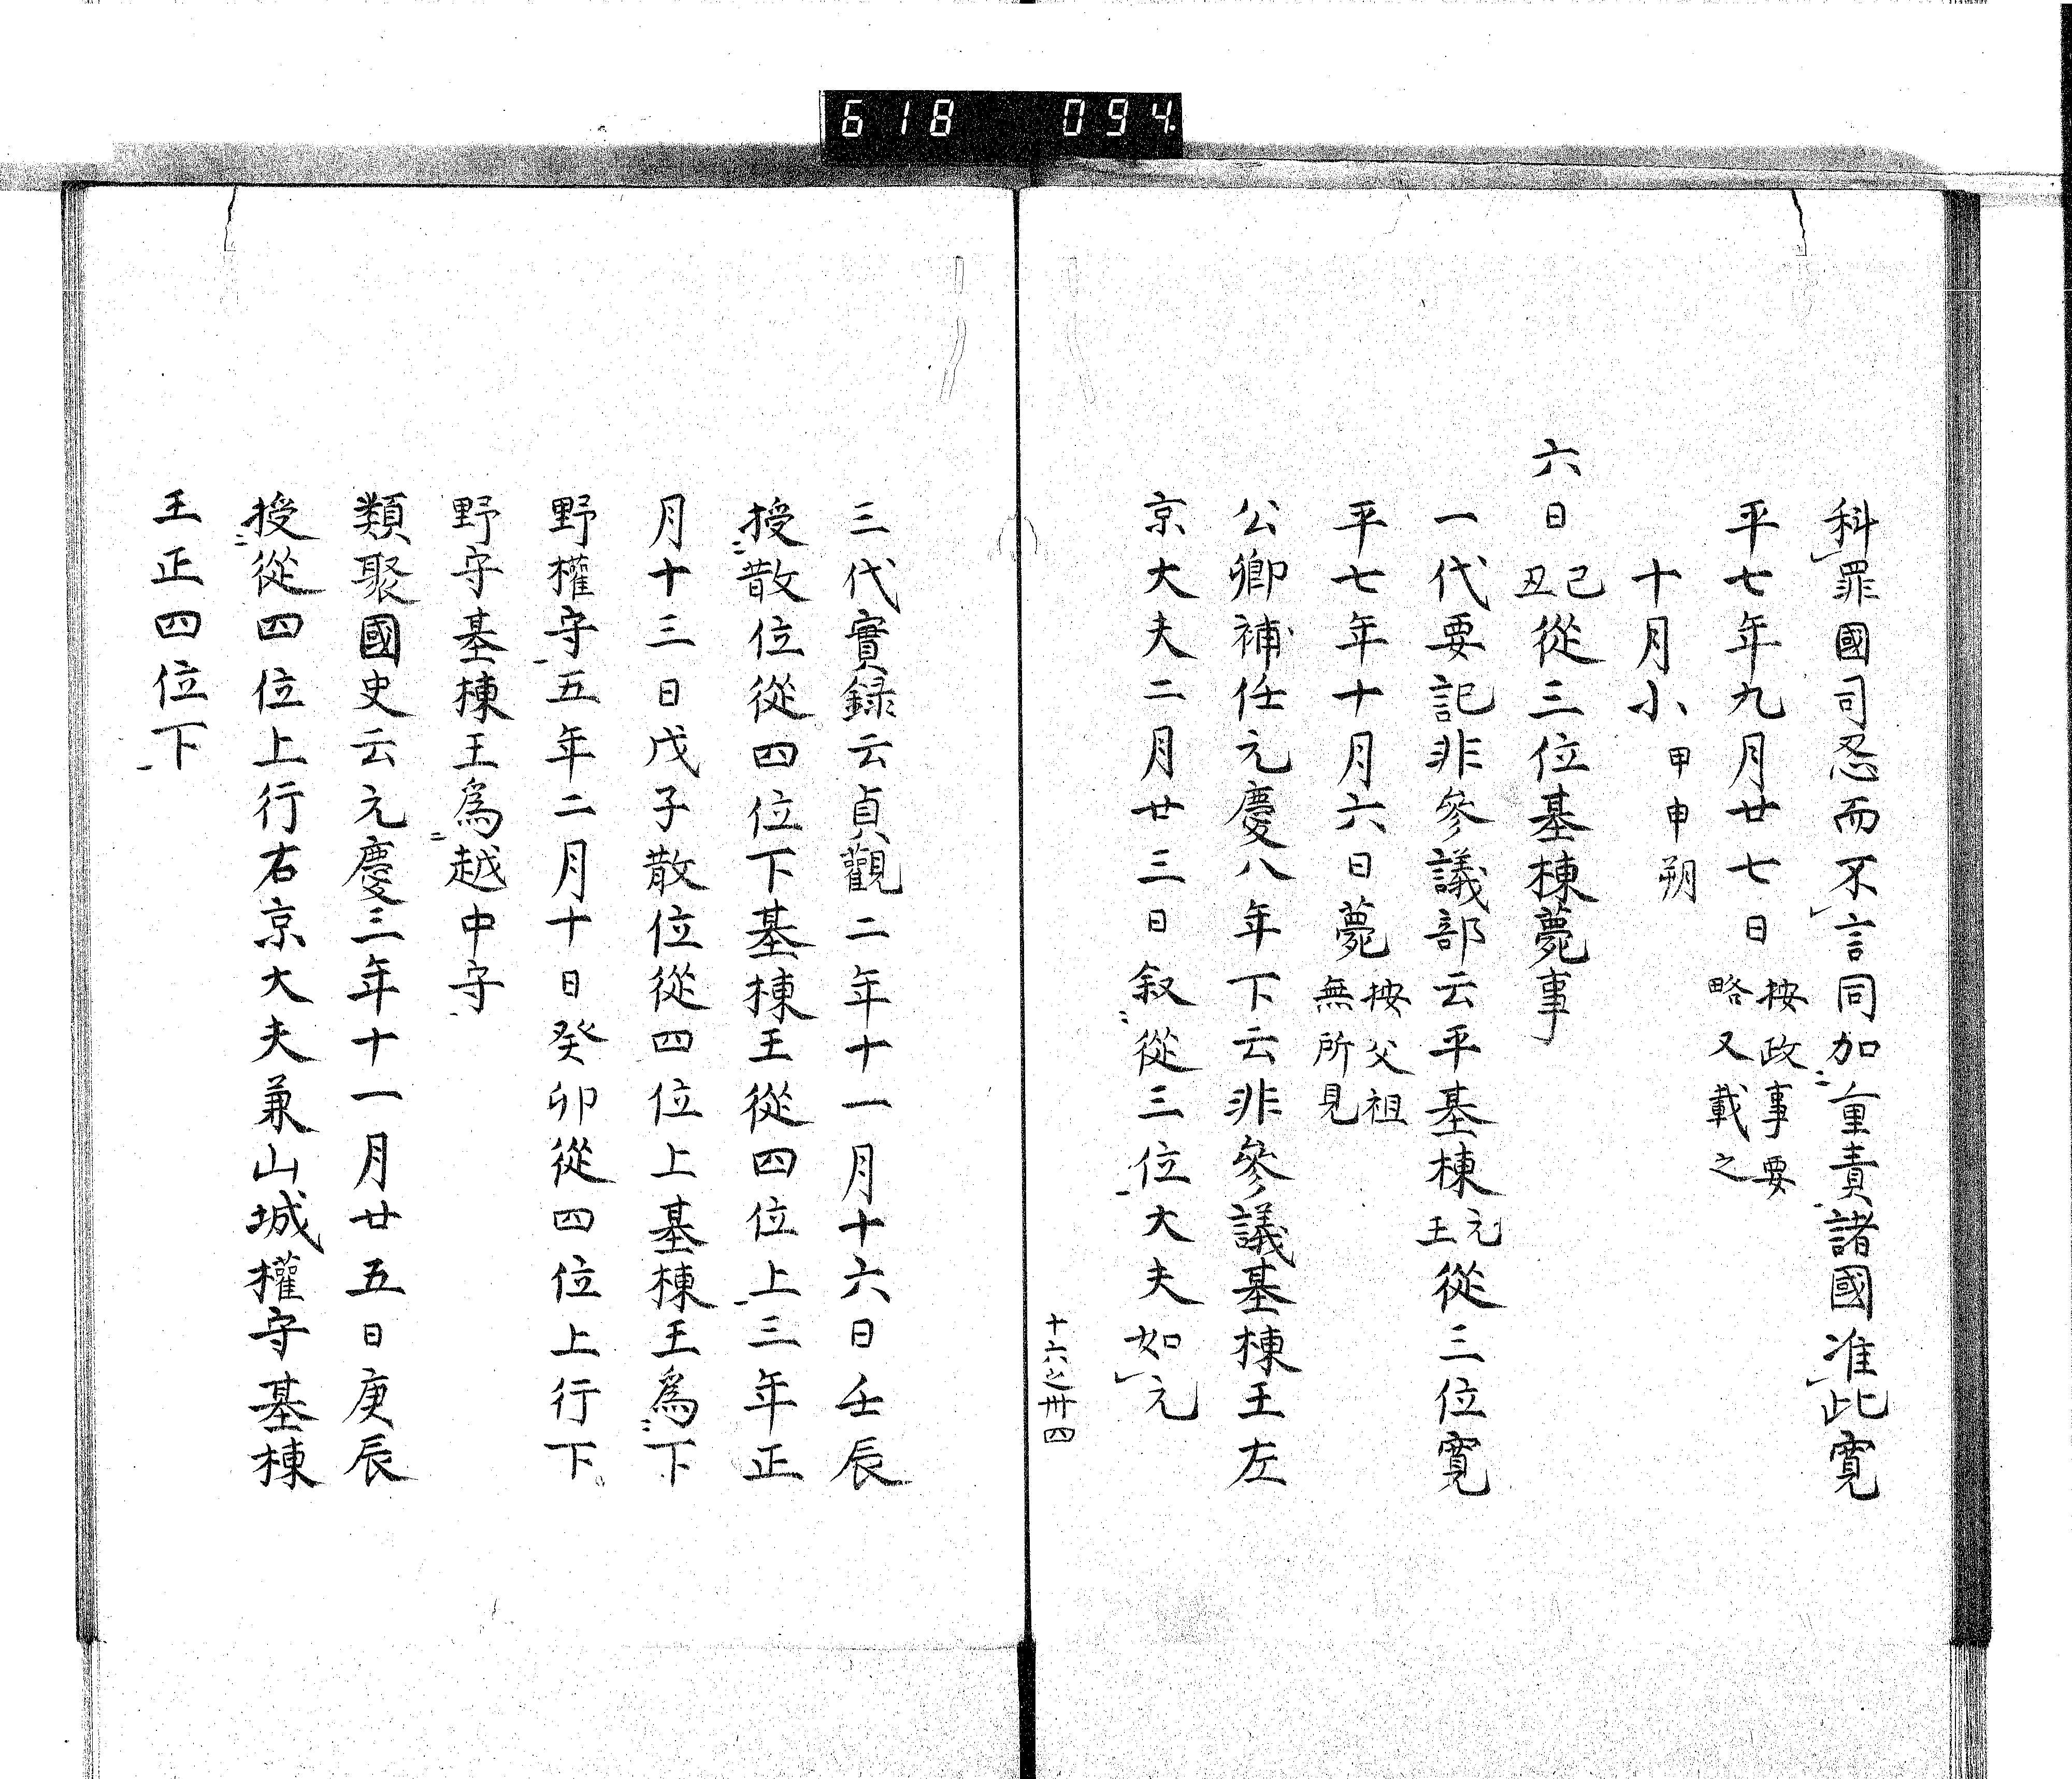 618 094
科罪國司忍而不言同加重責諸國准此寛
平七年九月廿七日 按政事要略又載之
十月小 甲申朔
六日 己丑 從三位基棟薨事
一代要記非參議部云平基棟 元王 從三位寛
平七年十月六日薨 按父祖無所見
公卿補任元慶八年下云非參議基棟王左
京大夫二月廿三日叙從三位大夫如元
十六之卅四
三代實録云貞觀二年十一月十六日壬辰
授散位從四位下基棟王從四位上三年正
月十三日戊子散位從四位上基棟王爲下
野權守五年二月十日癸卯從四位上行下
野守基棟王爲越中守
類聚國史云元慶三年十一月廿五日庚辰
授從四位上行右京大夫兼山城權守基棟
王正四位下